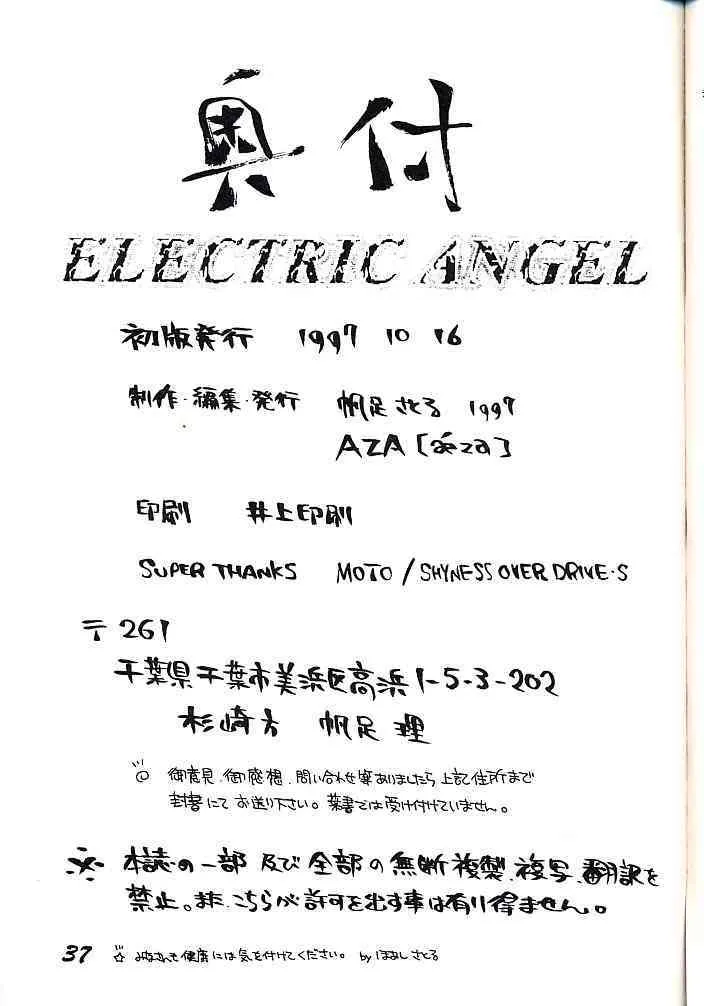 奥付
ELECTRIC ANGEL
初版発行 1997 10 16
制作・編集・発行 帆足さとる 1997
AZA [あざ]
印刷 井上印刷
SUPER THANKS MOTO / SHYNESS OVER DRIVE・S
〒261
千葉県千葉市美浜区高浜1-5-3-202
杉崎方 帆足 理
御意見、御感想、問い合わせ等ありましたら上記住所まで
封書にてお送り下さい。葉書では受け付けていません。
本誌の一部及び全部の無断複製、複写、翻訳を
禁止。また、こちらが許可を出す事は有り得ません。
37 みなさんも健康には気を付けてください。 by ほあしさとる